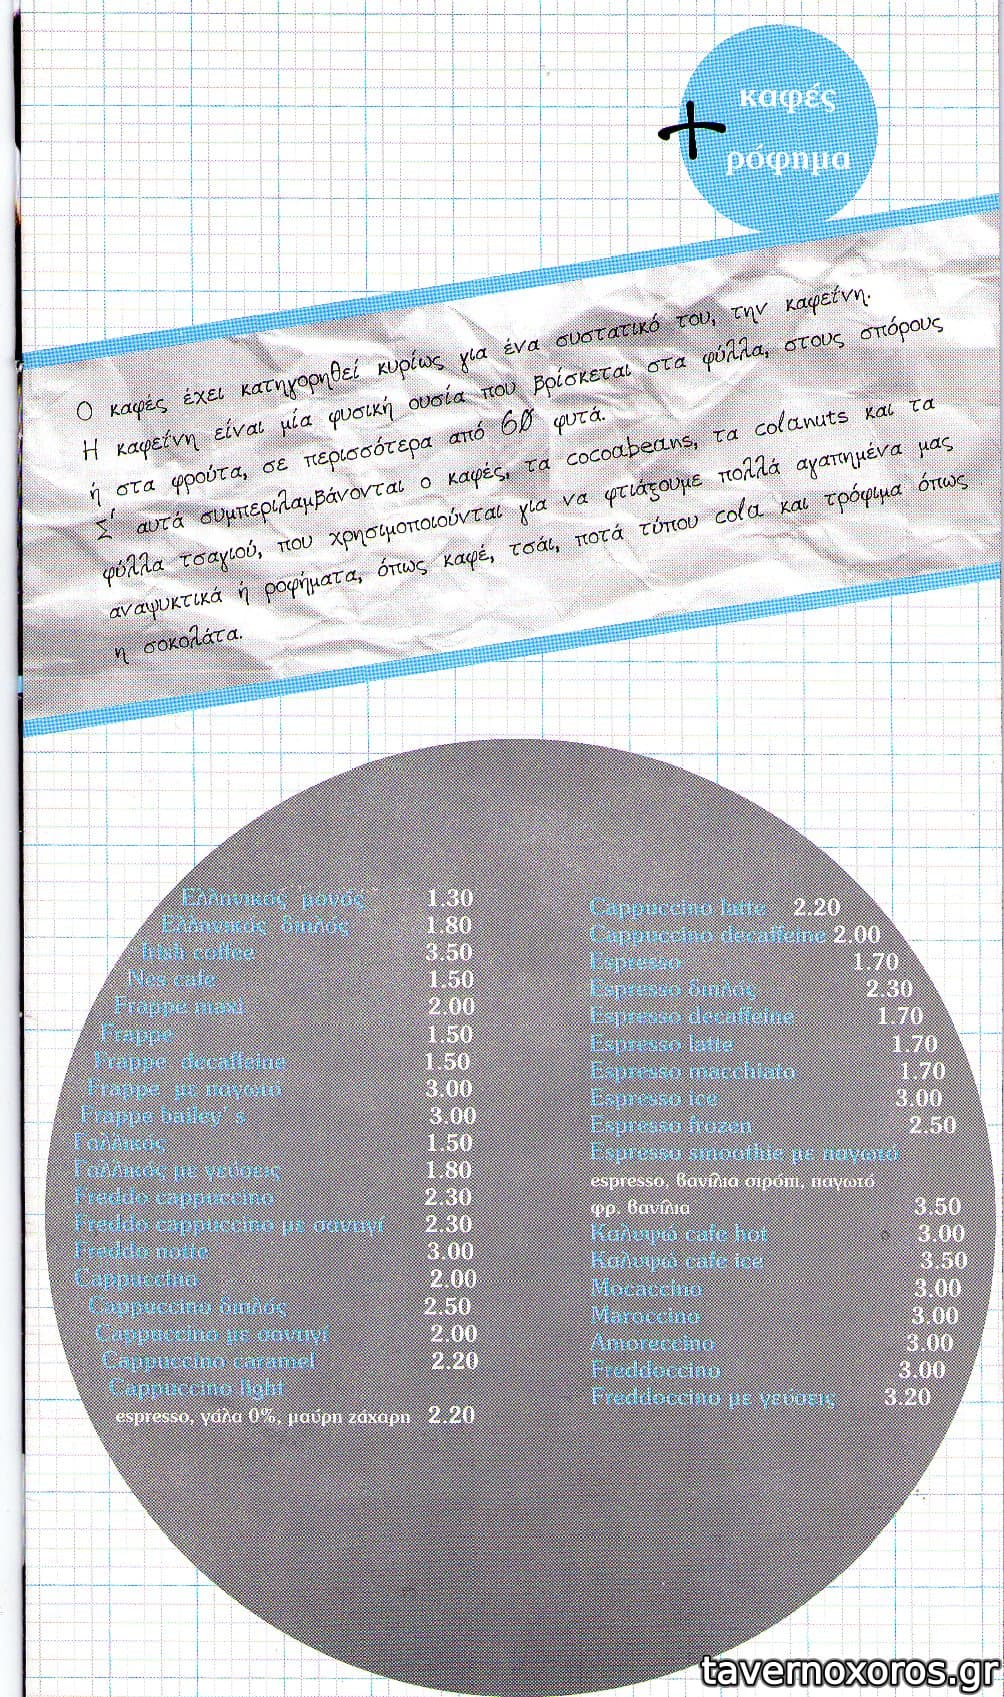 καφές
+
ρόφημα
Ο καφές έχει κατηγορηθεί κυρίως για ένα συστατικό του, την καφεΐνη.
Η καφεΐνη είναι μία φυσική ουσία που βρίσκεται στα φύλλα, στους σπόρους
ή στα φρούτα, σε περισσότερα από 60 φυτά.
Σ' αυτά συμπεριλαμβάνονται ο καφές, τα cocoabeans, τα colanuts και τα
φύλλα τσαγιού, που χρησιμοποιούνται για να φτιάξουμε πολλά αγαπημένα μας
αναψυκτικά ή ροφήματα, όπως καφέ, τσάι, ποτά τύπου cola και τρόφιμα όπως
η σοκολάτα.
Ελληνικός μονός 1.30
Ελληνικός διπλός 1.80
Irish coffee 3.50
Nes cafe 1.50
Frappe maxi 2.00
Frappe 1.50
Frappe decaffeine 1.50
Frappe με παγωτό 3.00
Frappe bailey' s 3.00
Γαλλικός 1.50
Γαλλικός με γεύσεις 1.80
Freddo cappuccino 2.30
Freddo cappuccino με σαντιγί 2.30
Freddo notte 3.00
Cappuccino 2.00
Cappuccino διπλός 2.50
Cappuccino με σαντιγί 2.00
Cappuccino caramel 2.20
Cappuccino light
espresso, γάλα 0%, μαύρη ζάχαρη 2.20
Cappuccino latte 2.20
Cappuccino decaffeine 2.00
Espresso 1.70
Espresso διπλός 2.30
Espresso decaffeine 1.70
Espresso latte 1.70
Espresso macchiato 1.70
Espresso ice 3.00
Espresso frozen 2.50
Espresso smoothie με παγωτό
espresso, βανίλια σιρόπι, παγωτό
φρ. βανίλια 3.50
Καλυψώ cafe hot 3.00
Καλυψώ cafe ice 3.50
Mocaccino 3.00
Maroccino 3.00
Amoreccino 3.00
Freddoccino 3.00
Freddoccino με γεύσεις 3.20
tavernoxoros.gr